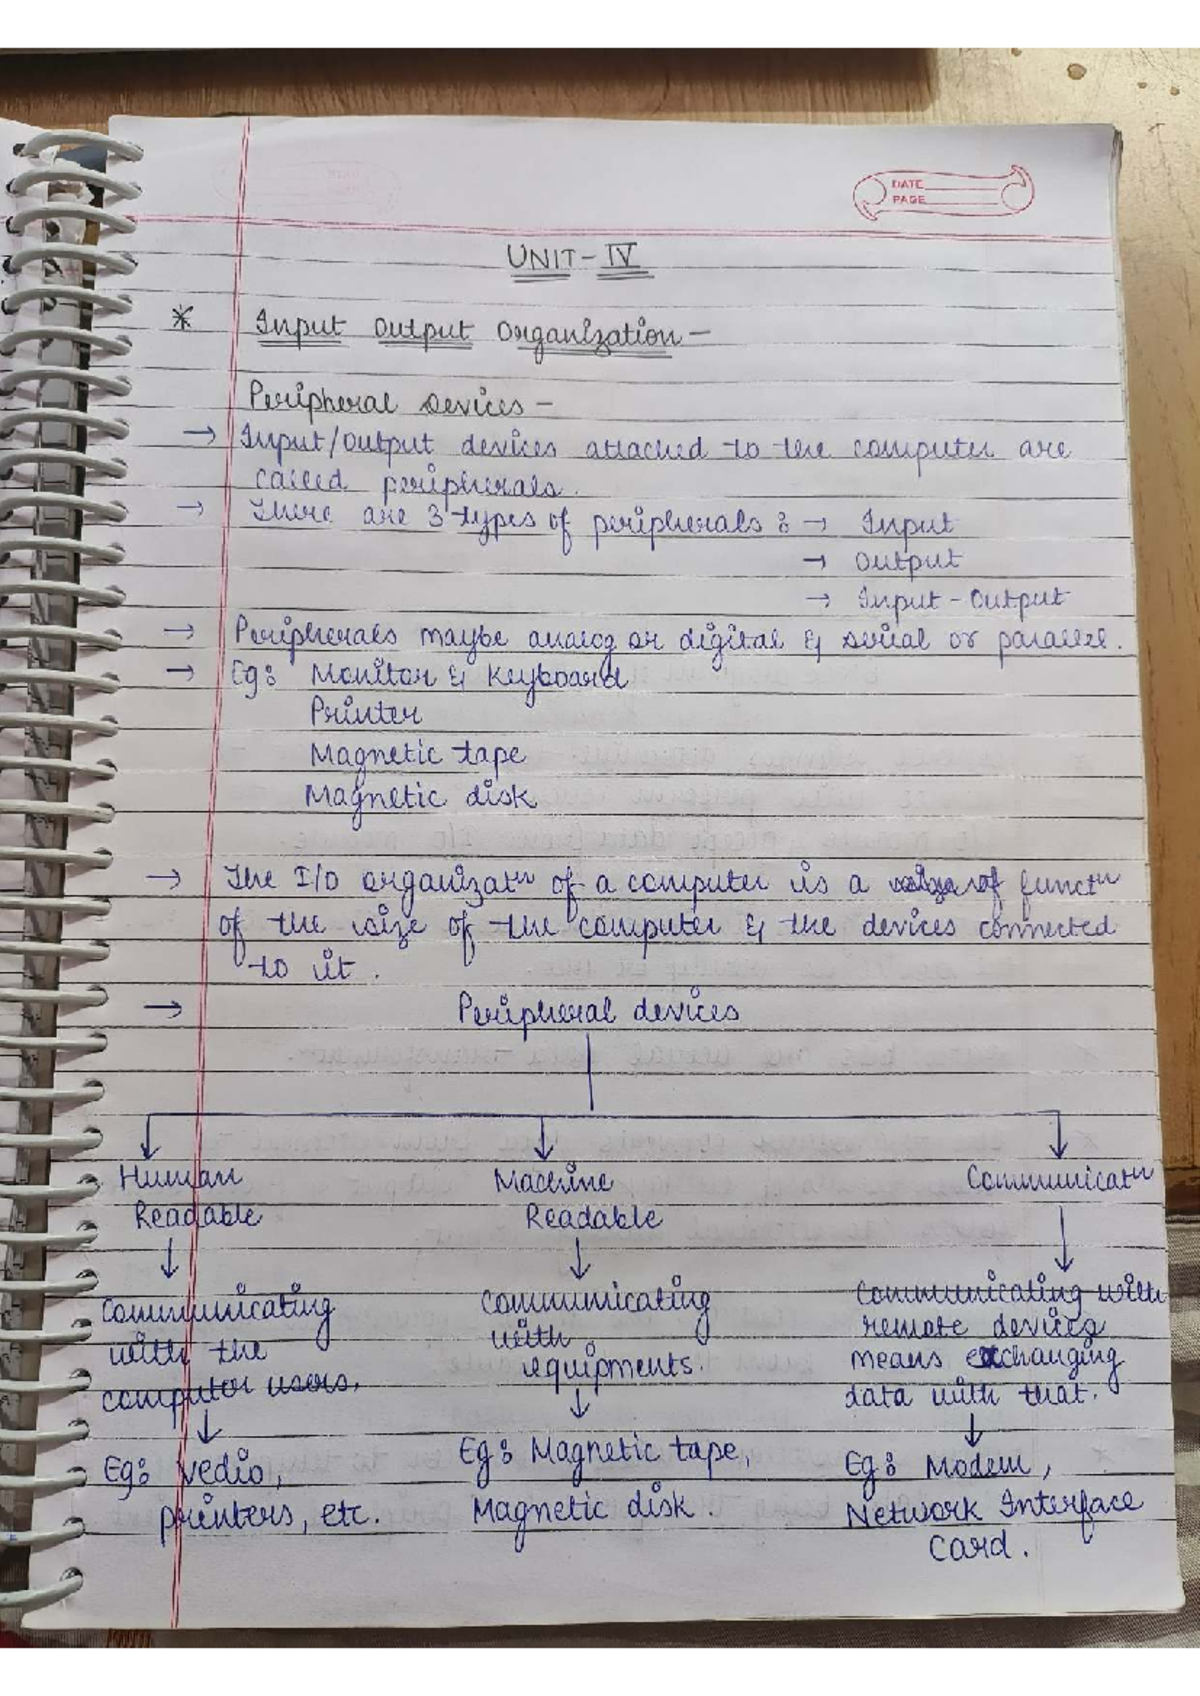 DATE
PAGE
UNIT-IV
* Input Output Organization-
Peripheral Devices-
→ Input/Output devices attached to the computer are
called peripherals.
→ There are 3 types of peripherals : → Input
→ Output
→ Input-Output
→ Peripherals maybe analog or digital & serial or parallel.
→ Eg: Monitor & Keyboard
Printer
Magnetic tape
Magnetic disk
→ The I/O organizatn of a computer is a functn
of the size of the computer & the devices connected
to it.
→ Peripheral devices
Human Machine Communicatn
Readable Readable
Communicating Communicating Communicating with
with the with remote devices
computer users. equipments. means exchanging
data with that.
Eg: Vedio, Eg: Magnetic tape, Eg: Modem,
printers, etc. Magnetic disk. Network Interface
Card.